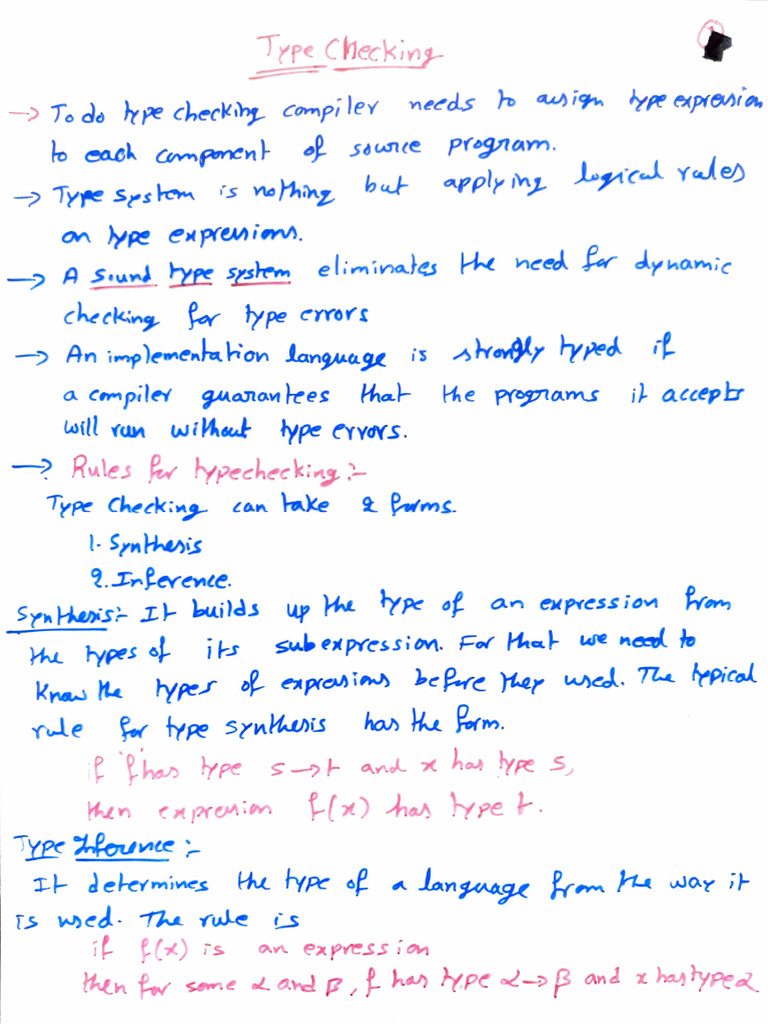 Type Checking
→ To do type checking compiler needs to assign type expression
to each component of source program.
→ Type system is nothing but applying logical rules
on type expressions.
→ A sound type system eliminates the need for dynamic
checking for type errors
→ An implementation language is strongly typed if
a compiler guarantees that the programs it accepts
will run without type errors.
→ Rules for typechecking :-
Type Checking can take 2 forms.
1. Synthesis
2. Inference.
Synthesis:- It builds up the type of an expression from
the types of its subexpression. For that we need to
know the types of expressions before they used. The typical
rule for type synthesis has the form.
if f has type s → t and x has type s,
then expression f(x) has type t.
Type Inference :-
It determines the type of a language from the way it
is used. The rule is
if f(x) is an expression
then for some α and β, f has type α → β and x has type α